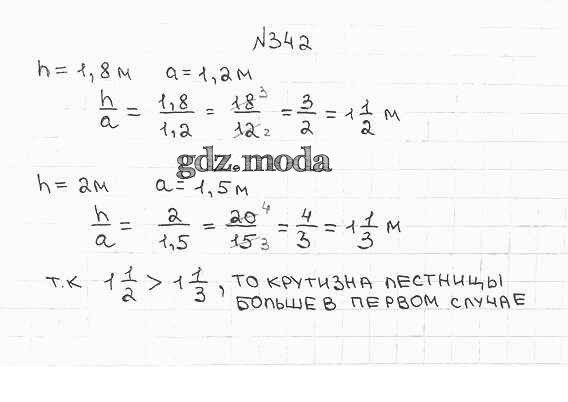 №342
h = 1,8 м   a = 1,2 м
h/a = 1,8/1,2 = 18³/12₂ = 3/2 = 1 1/2 м
gdz.moda
h = 2м   a = 1,5 м
h/a = 2/1,5 = 20⁴/15₃ = 4/3 = 1 1/3 м
т.к 1 1/2 > 1 1/3, то крутизна лестницы
больше в первом случае